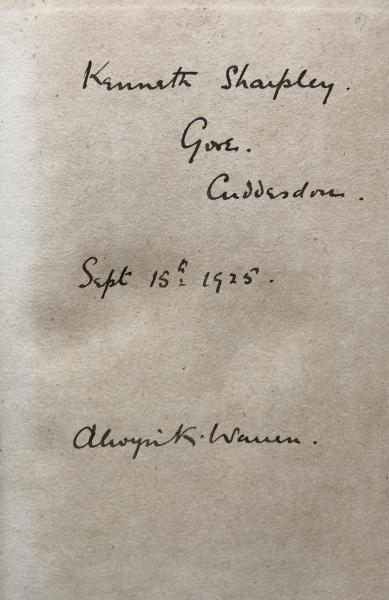 Kenneth Sharpley.
Gore.
Cuddesdon.
Sept 15th 1925.
Alwyn K. Warren.